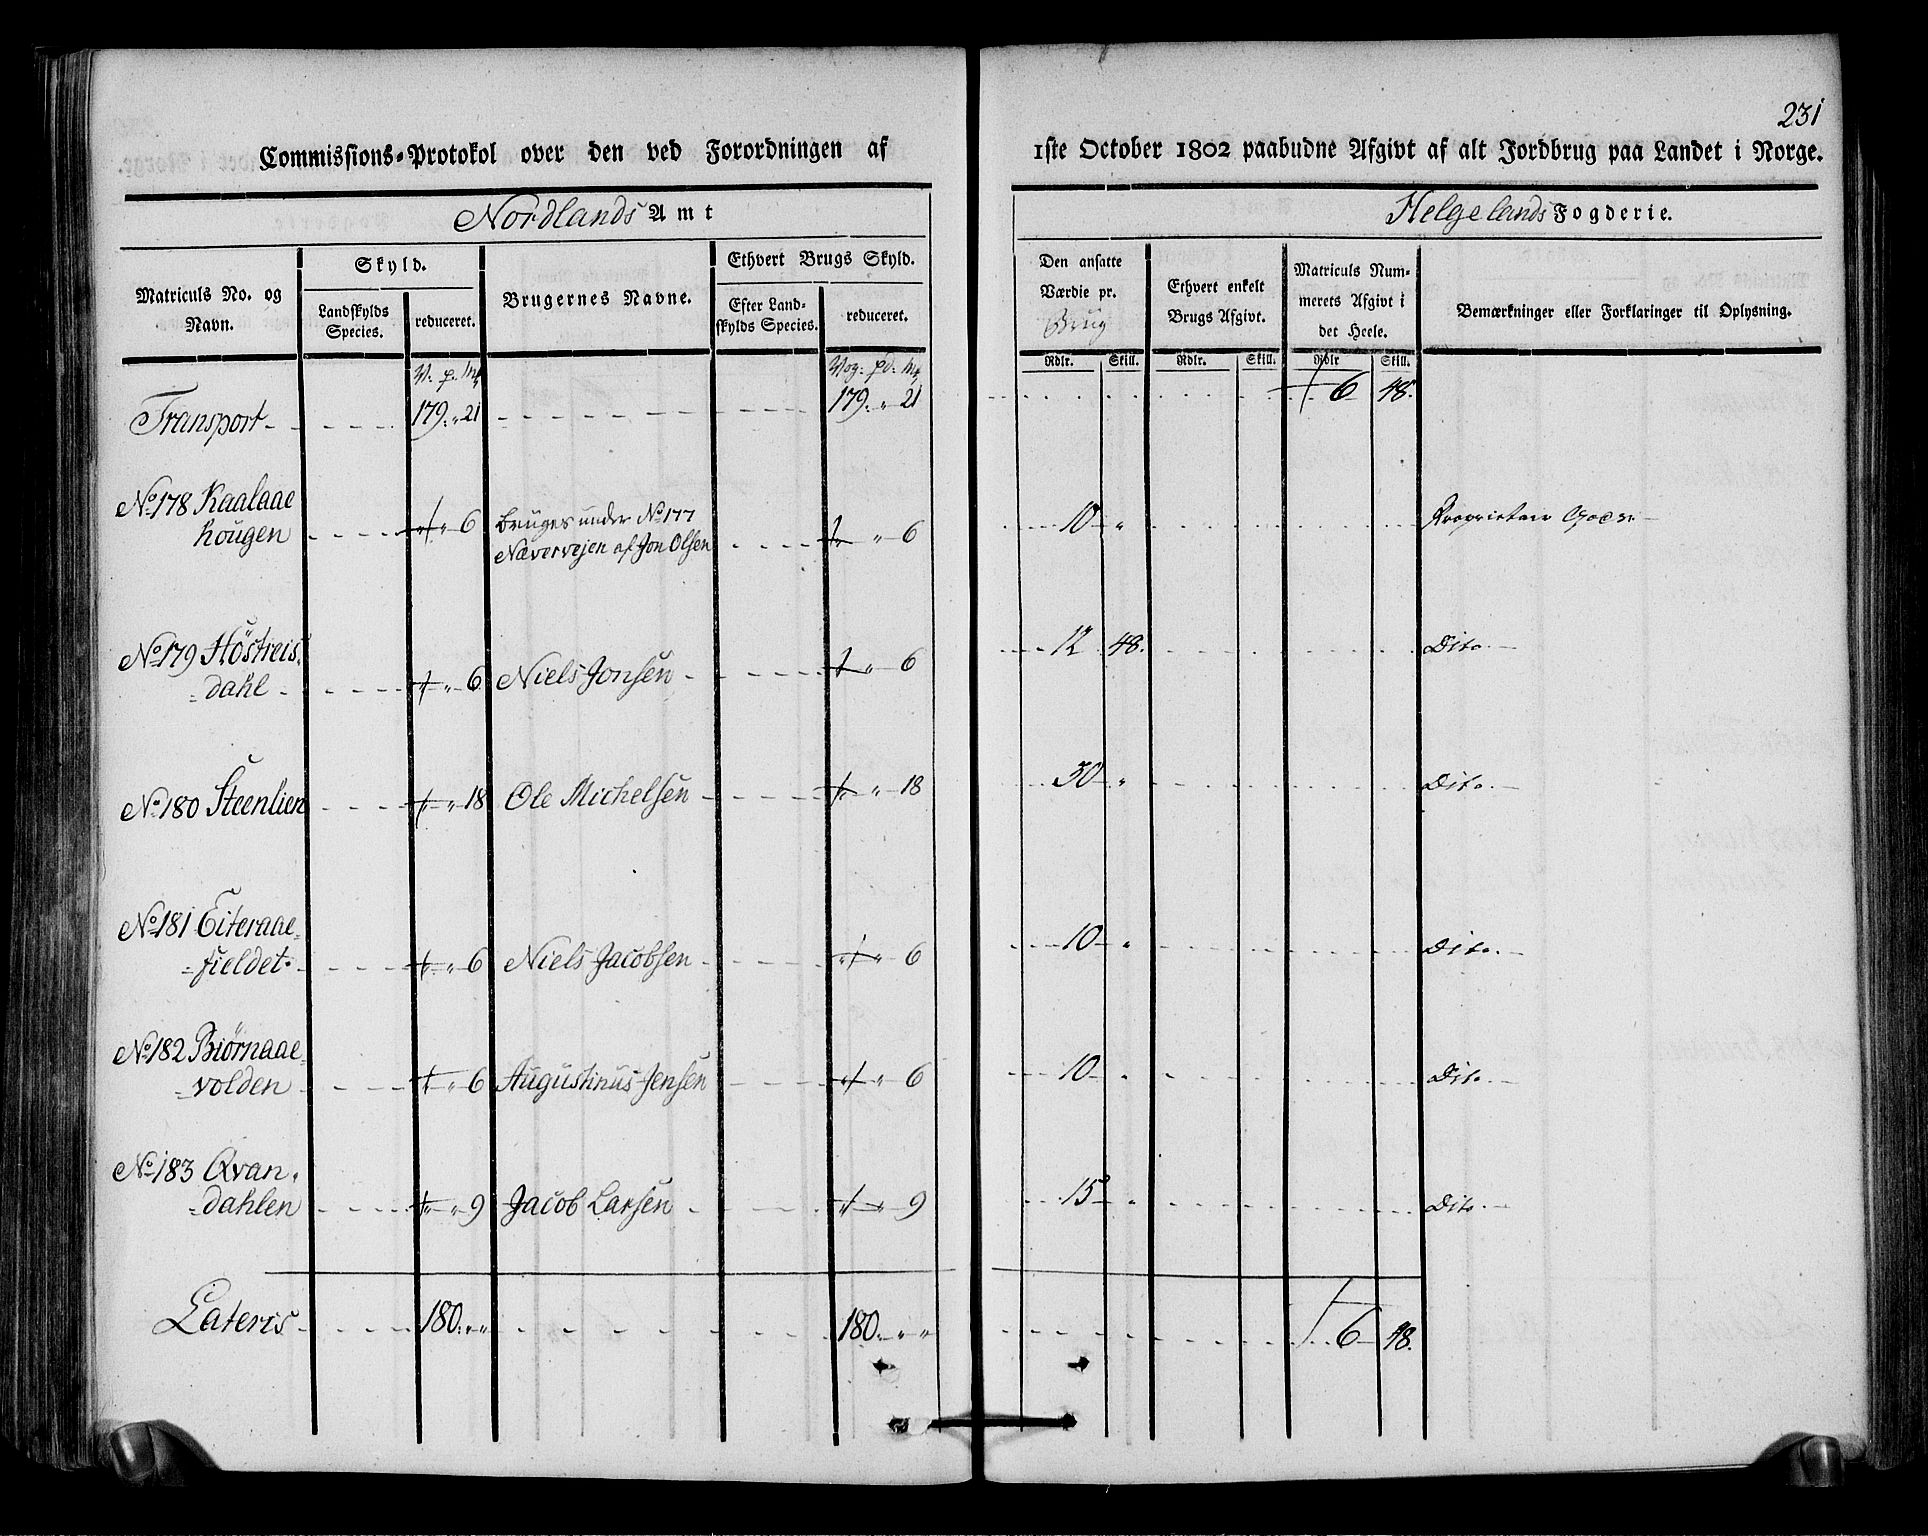 231
Commissions-Protokol over den ved Forordningen af 1ste October 1802 paabudne Afgivt af alt Jordbrug paa Landet i Norge.
Nordlands Amt
Helgelands Fogderie.
Matriculs No. og Navn.
Skyld.
Landskylds Species.
reduceret.
Brugernes Navne.
Ethvert Brugs Skyld.
Efter Landskylds Species.
reduceret.
Den ansatte Værdie pr. Brug
Ethvert enkelt Brugs Afgivt.
Matriculs Nummerets Afgivt i det Heele.
Bemærkninger eller Forklaringer til Oplysning.
Rdlr. Skill. Rdlr. Skill. Rdlr Skill.
V: p. Mk
Vog: pd: Mk
Transport 179. " 21 179. " 21 6 48.
No 178 Kaalaae
hougen " 6 bruges under No 177
Nævervejen af Jon Olsen " 6 10 " Proprietair Gods.
No 179 Höstreis
dahl " 6 Niels Jonsen " 6 12 48. Dito.
No 180 Steenlien " 18 Ole Michelsen " 18 30 " Dito.
No 181 Eiteraae
fieldet. " 6 Niels Jacobsen " 6 10 " Dito.
No 182 Biörnaae
volden " 6 Augustinus Jensen " 6 10 " Dito.
No 183 Qvan
dahlen " 9 Jacob Larsen " 9 15 " Dito.
Lateris 180. " " 180. " " 6 48.